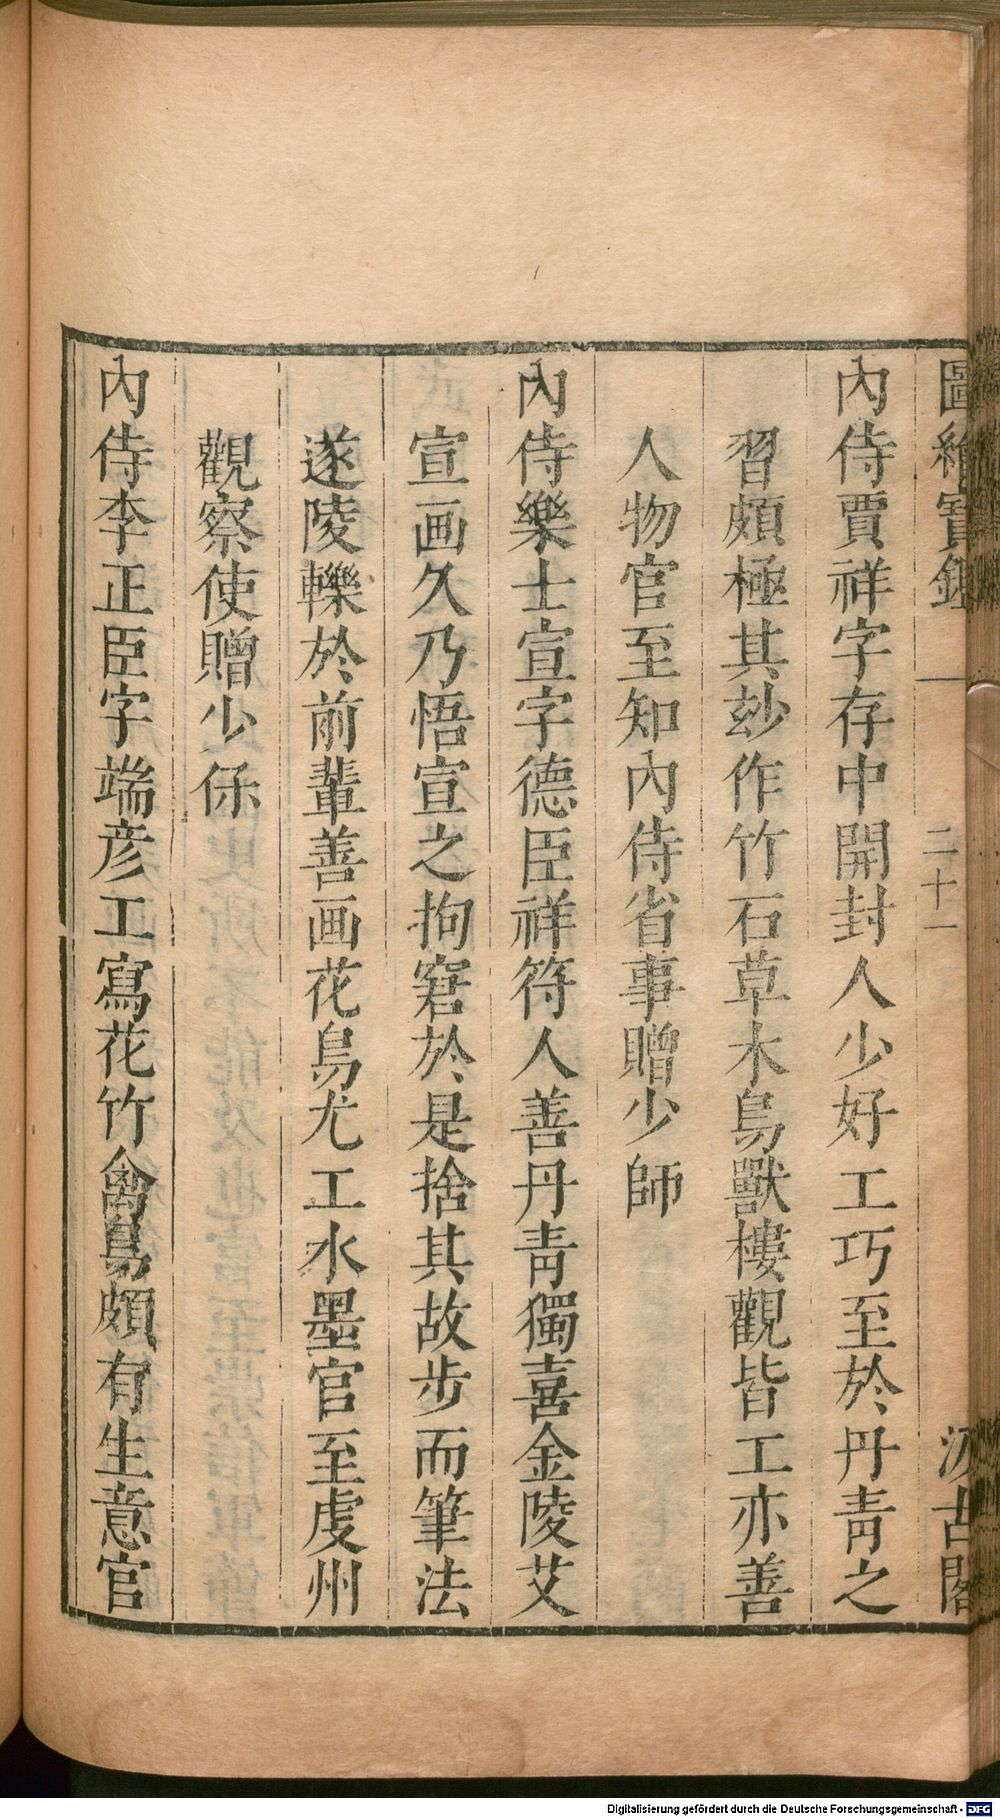 圖繪寶鑑 二十一 汲古閣
內侍賈祥字存中開封人少好工巧至於丹靑之
習頗極其玅作竹石草木鳥獸樓觀皆工亦善
人物官至知內侍省事贈少師
內侍樂士宣字德臣祥符人善丹靑獨喜金陵艾
宣画久乃悟宣之拘窘於是捨其故步而筆法
遂陵轢於前輩善画花鳥尤工水墨官至虔州
觀察使贈少保
內侍李正臣字端彥工寫花竹禽鳥頗有生意官
Digitalisierung gefördert durch die Deutsche Forschungsgemeinschaft - DFG